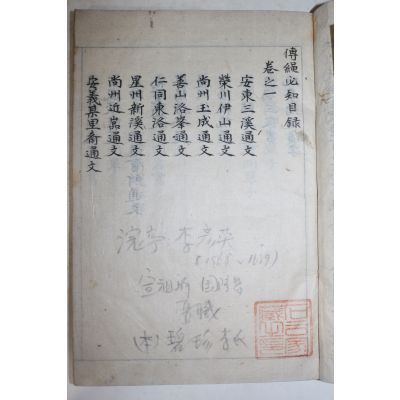 傳繩必知目錄
卷之一
安東三溪通文
榮川伊山通文
尚州玉成通文
善山洛峯通文
仁同東洛通文
星州新溪通文
尚州近嵓通文
安義縣里斎通文
浣亭 李彦英
(1568~1639)
宣祖所
(本) 碧珍 李氏